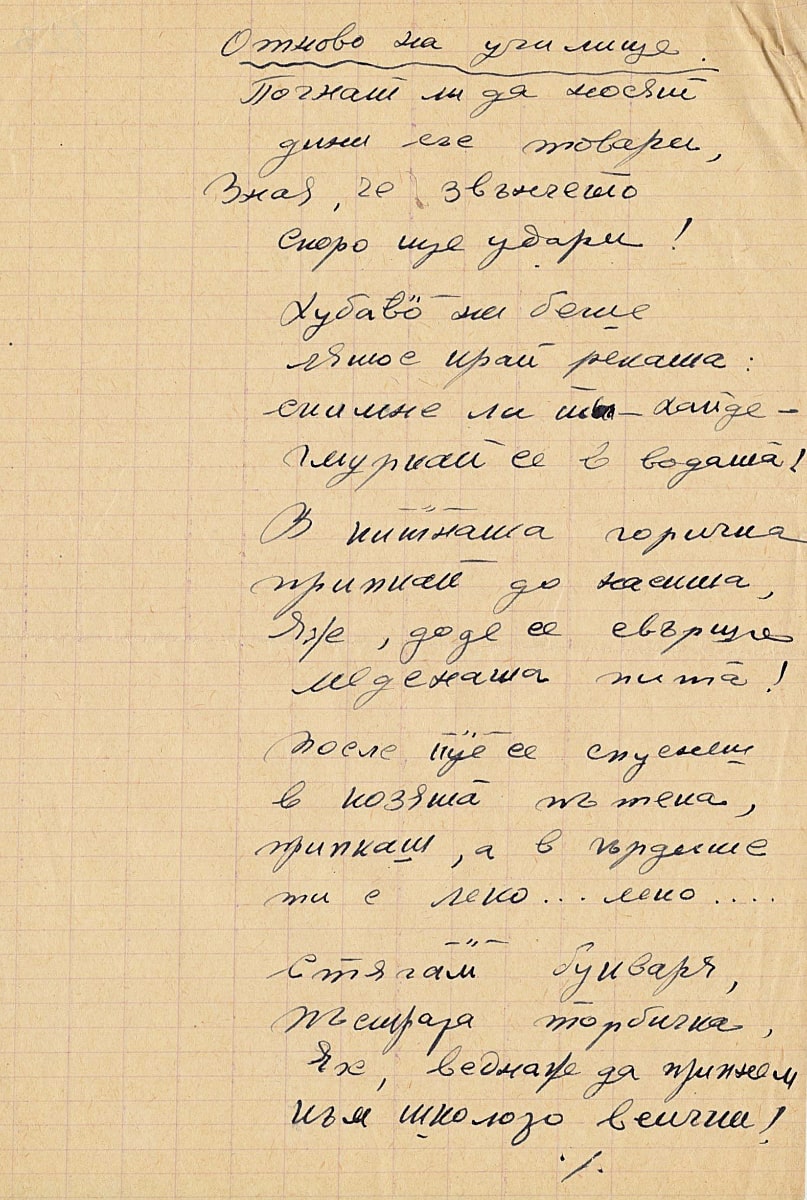 Отново на училище.
Почнат ли да носят
дини със товари,
Зная, че звънчето
скоро ще удари!
Хубаво ни беше
лятос край реката:
скимне ли ти – хайде –
гмуркай се в водата!
– " –
В китната горичка
припкай до насита,
Яж, доде се свърши
медената пита!
– " –
После се спуснеш
в козята пътека,
припкаш, а в гърдите
ти е леко... леко....
– " –
Стягам букваря,
пъстрата торбичка,
Ях, веднаж да припнем
към школото всички!
·/.